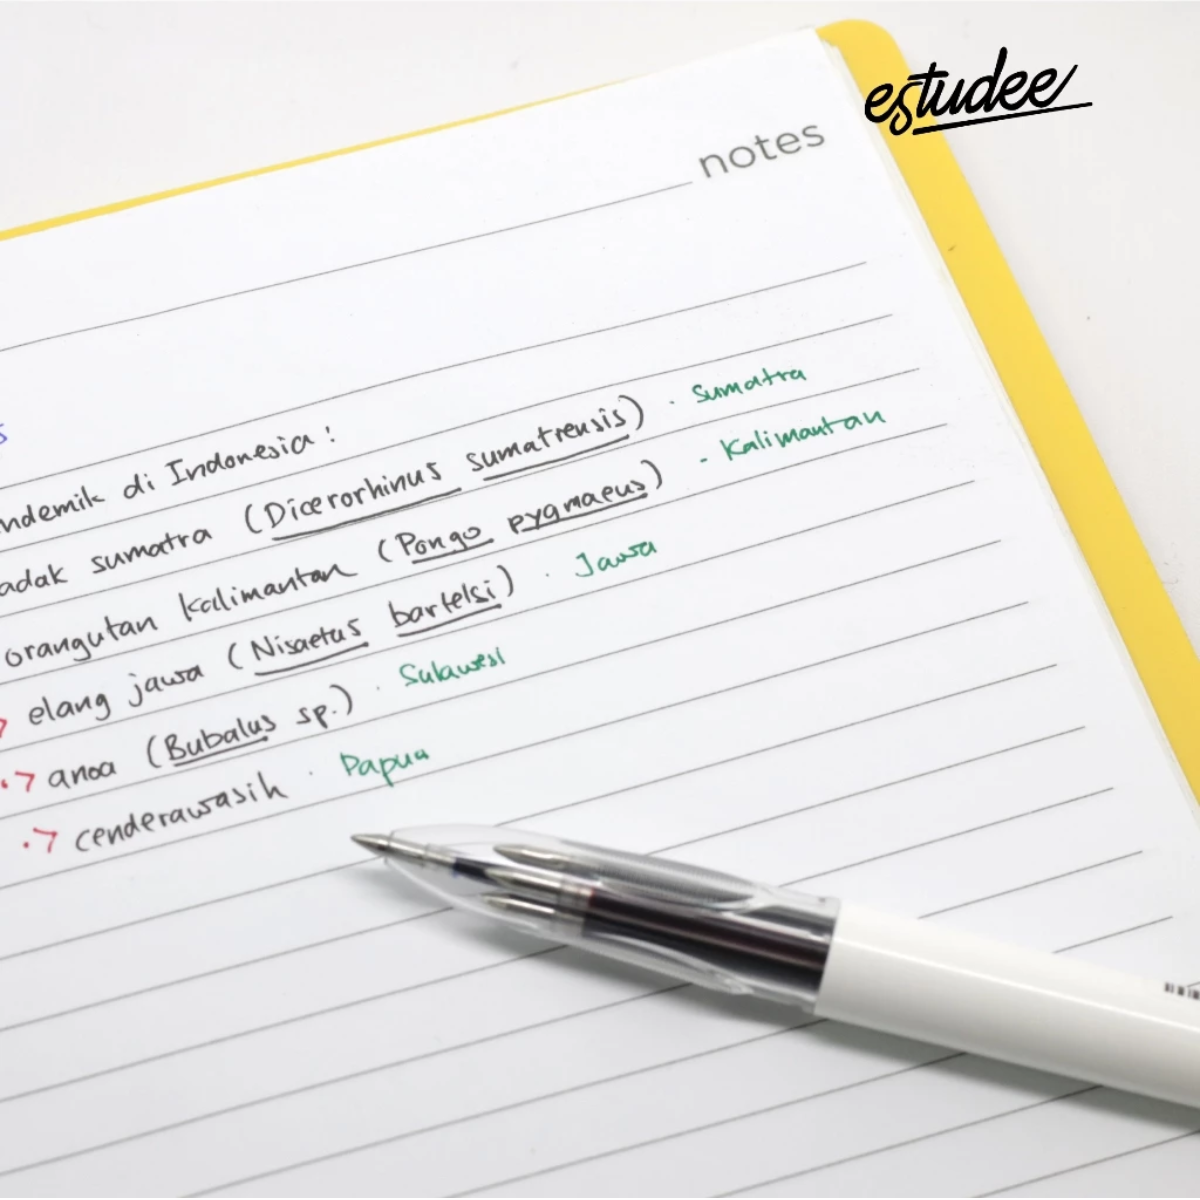 estudee
notes
ndemik di Indonesia :
adak sumatra (Dicerorhinus sumatrensis) · Sumatra
orangutan kalimantan (Pongo pygmaeus) - Kalimantan
elang jawa (Nisaetus bartelsi) · Jawa
anoa (Bubalus sp.) · Sulawesi
cenderawasih · Papua